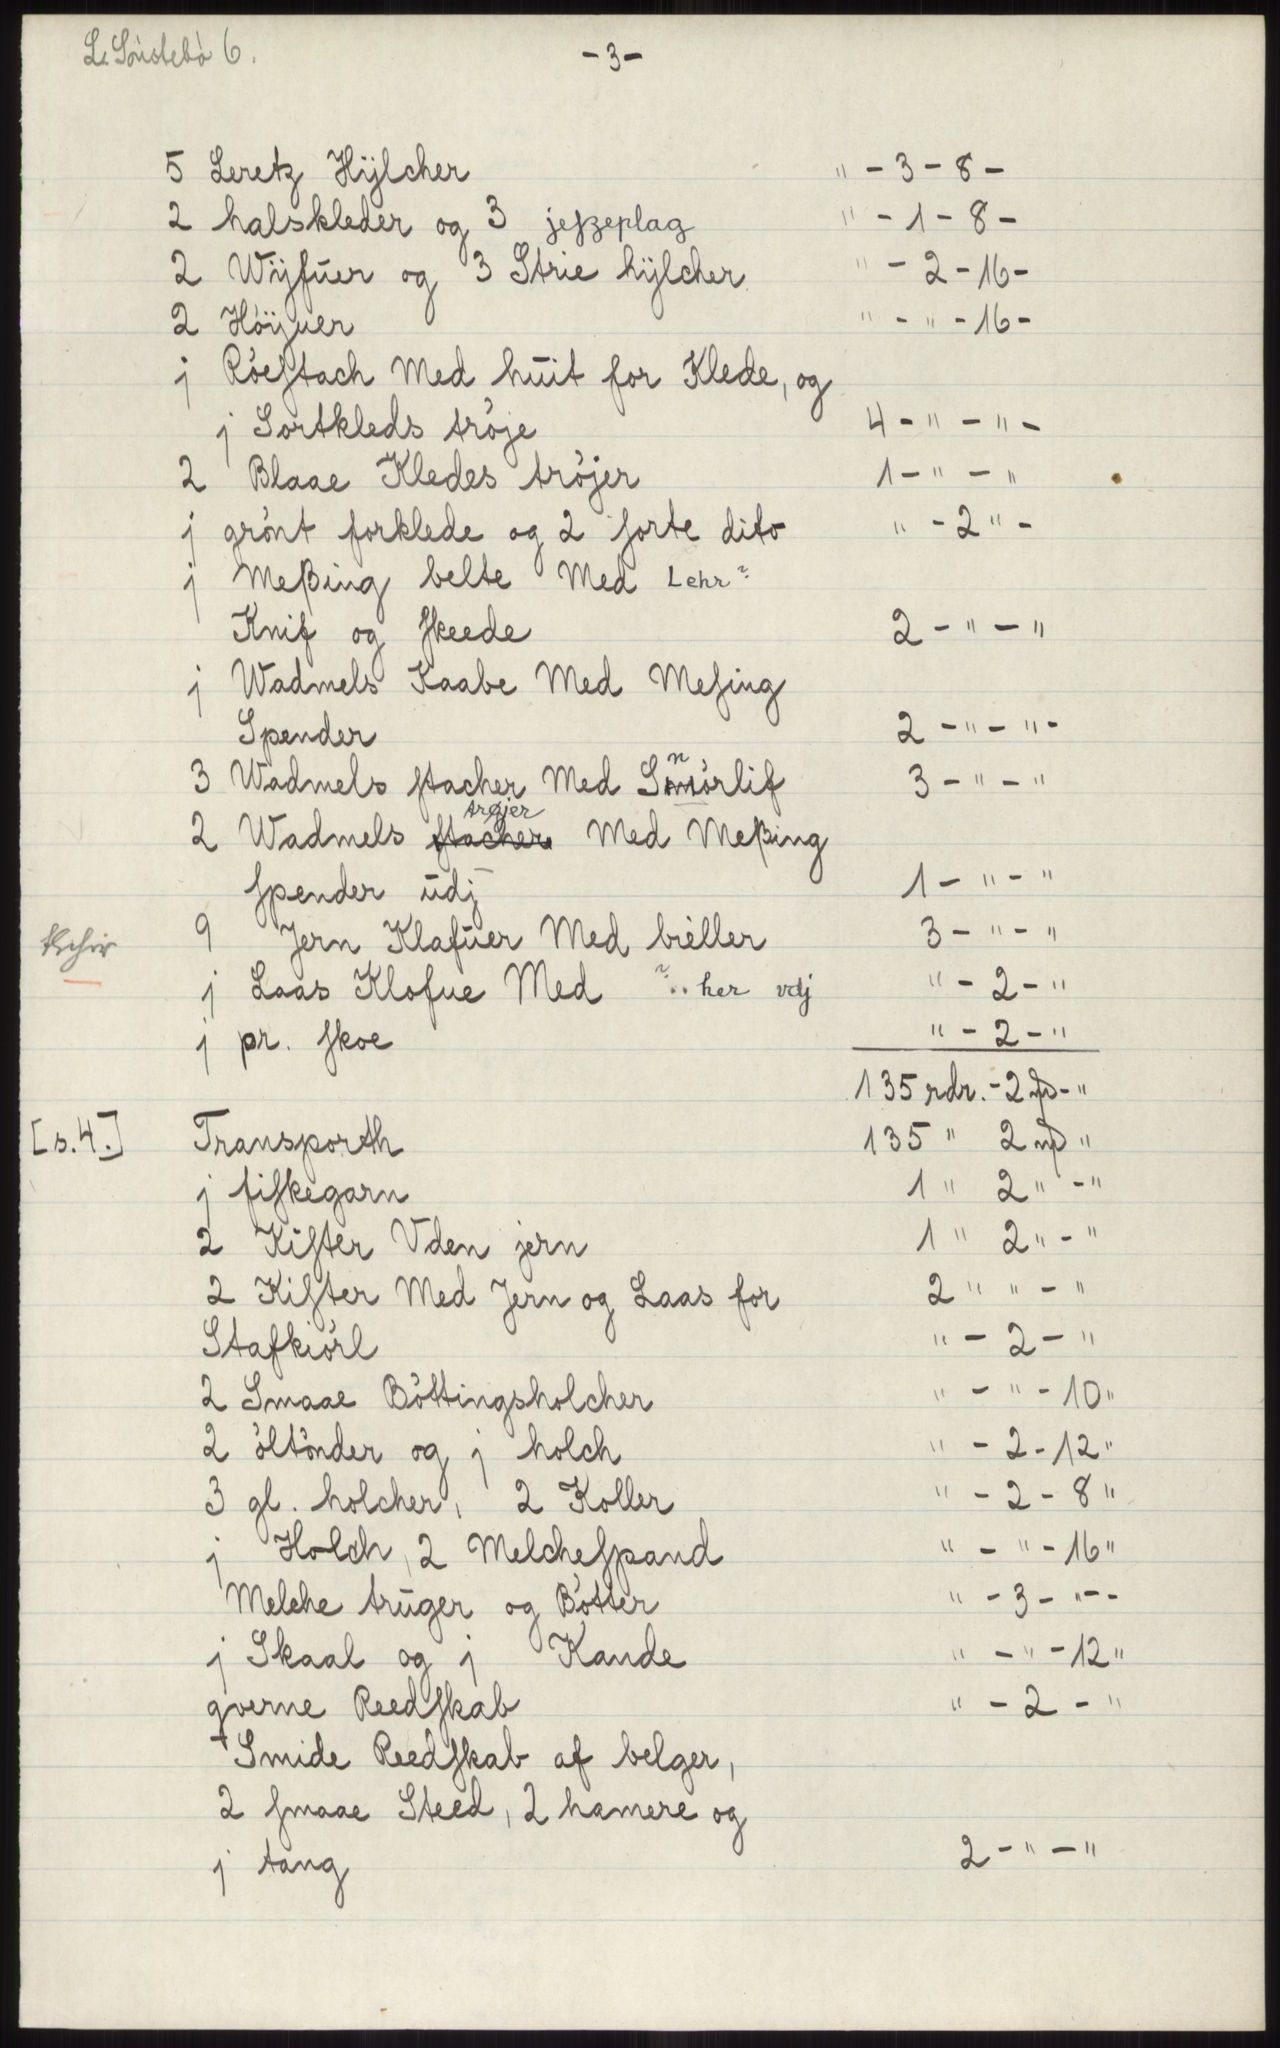 L. Sóustebó 6.
-3-
5 Leretz Hÿlcher " - 3 - 8 -
2 halskleder og 3 jeſzeplag " - 1 - 8 -
2 Wÿfuer og 3 Strie hÿlcher " - 2 - 16 -
2 Hóÿuer " - " - 16 -
j Róeſtach Med huit for Klede, og
j Sortkleds tróje 4 - " - " -
2 Blaae Kledes trójer 1 - " - "
j grónt forklede og 2 ſorte dito " - 2 " -
j Meßing belte Med Lehr ?
Knif og ſkeede 2 - " - "
j Wadmels Kaabe Med Meſing
Spender 2 - " - " -
3 Wadmels ſtacher Med Snórlif 3 - " - "
trøjer
2 Wadmels ſtacher Med Meßing
ſpender udj 1 - " - "
9 Jern Klafuer Med bieller 3 - " - "
j Laas Klofue Med ?..her vdj " - 2 - "
j pr. ſkoe " - 2 - "
135 rdr. - 2 ꝶ - "
[s.4.] Transporth 135 " 2 ꝶ "
j fiſkegarn 1 " 2 " - "
2 Kiſter Vden jern 1 " 2 " - "
2 Kiſter Med Jern og Laas for 2 " " - "
Stafkiórl " - 2 - "
2 Smaae Bóttingsholcher " - " - 10 "
2 óltónder og j holch " - 2 - 12 "
3 gl. holcher, 2 Koller " - 2 - 8 "
j Holch, 2 Melcheſpand " - " - 16 "
Melche truger og Bótter " - 3 - " - -
j Skaal og j Kande " - " - 12 "
qverne Reedſkab " - 2 - "
+ Smide Reedſkab af belger,
2 ſmaae Steed, 2 hamere og
j tang 2 - " - "